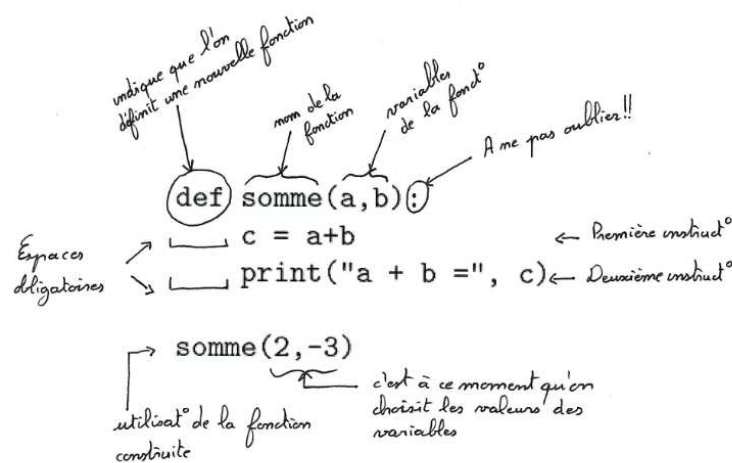 indique que l'on
définit une nouvelle fonction
nom de la
fonction
variables
de la fonct°
A ne pas oublier!!
def somme(a,b):
Espaces
obligatoires
c = a+b
← Première instruct°
print("a + b =", c)
← Deuxième instruct°
somme(2,-3)
utilisat° de la fonction
construite
c'est à ce moment qu'on
choisit les valeurs des
variables